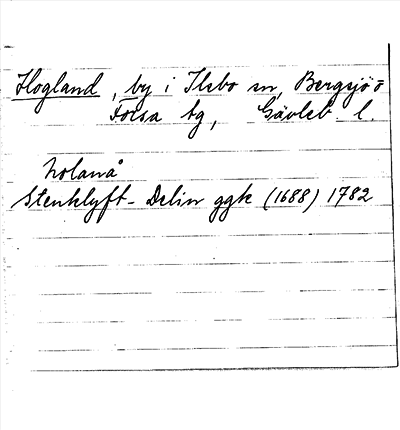 Hogland, by i Ilsbo sn, Bergsjö o
Forsa tg, Gävleb. l.
Nolanå
Stenklyft - Delin ggk (1688) 1782